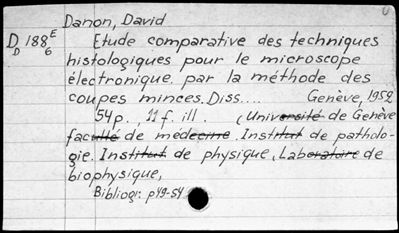 Danon, David
D 188 E
D 6
Etude comparative des techniques
histologiques pour le microscope
électronique par la méthode des
coupes minces. Diss.... Genève, 1952
54p., 11f. ill. (Université de Genève
faculté de médecine. Institut de patholo-
gie. Institut de physique, Laboratoire de
biophysique,
Bibliogr. p49-54